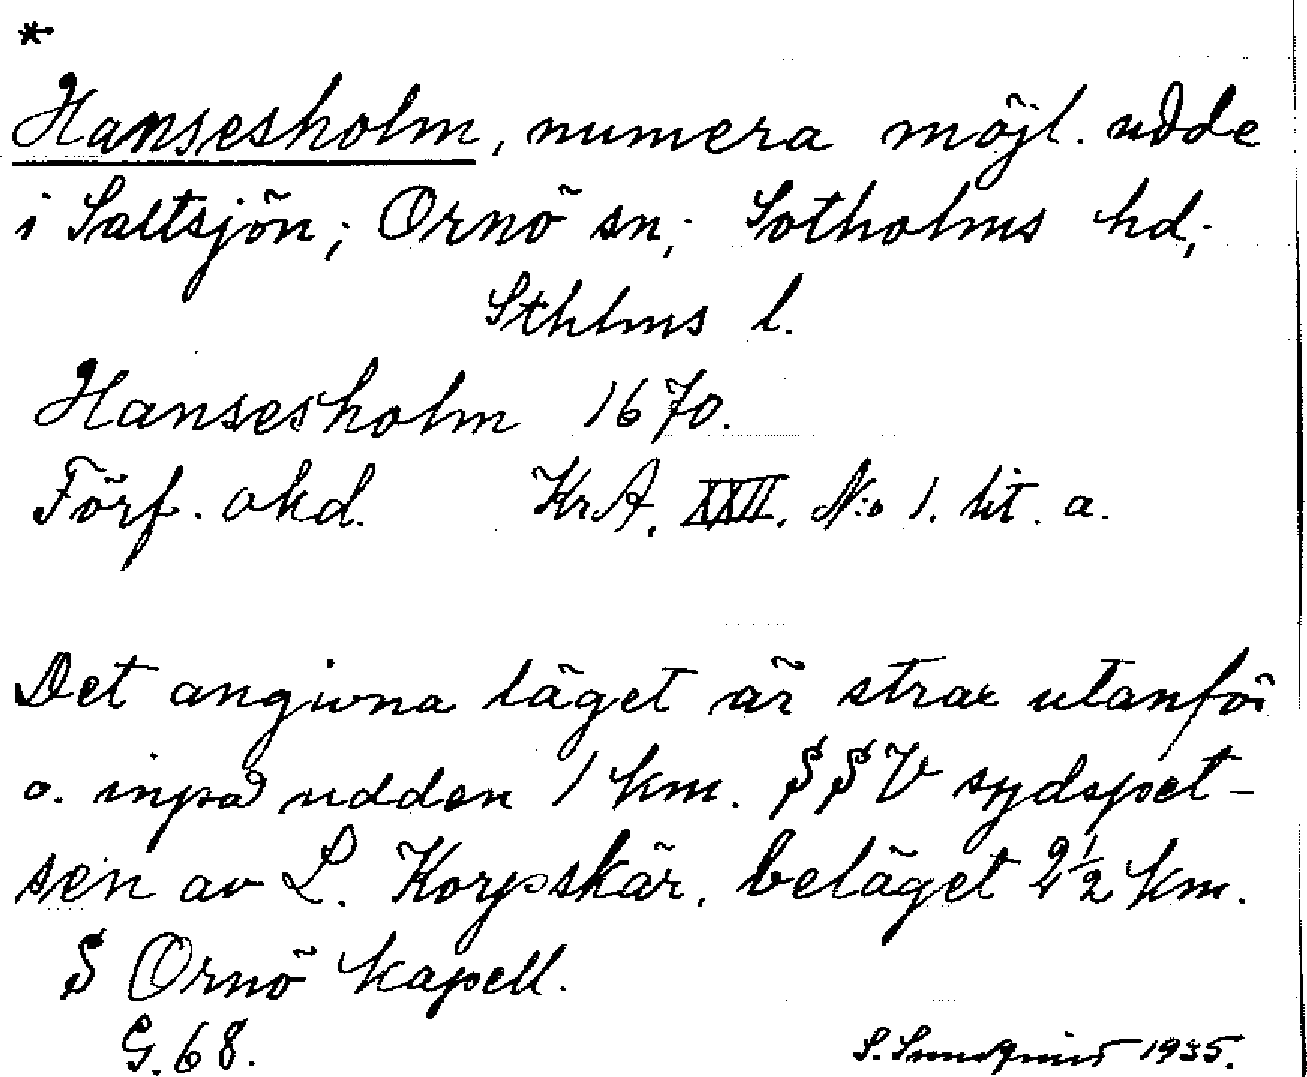 *
Hansesholm, numera möjl. udde
i Saltsjön; Ornö sn; Sotholms hd;
Sthlms l.
Hansesholm 1670.
Förf. okd. KrA, XXII. N:o 1. lit. a.
Det angivna läget är strax utanför
o. inpå udden 1 km. SSV sydspet-
sen av L. Korpskär, beläget 2½ km.
S Ornö kapell.
G. 68. S. Sundqvist 1935.